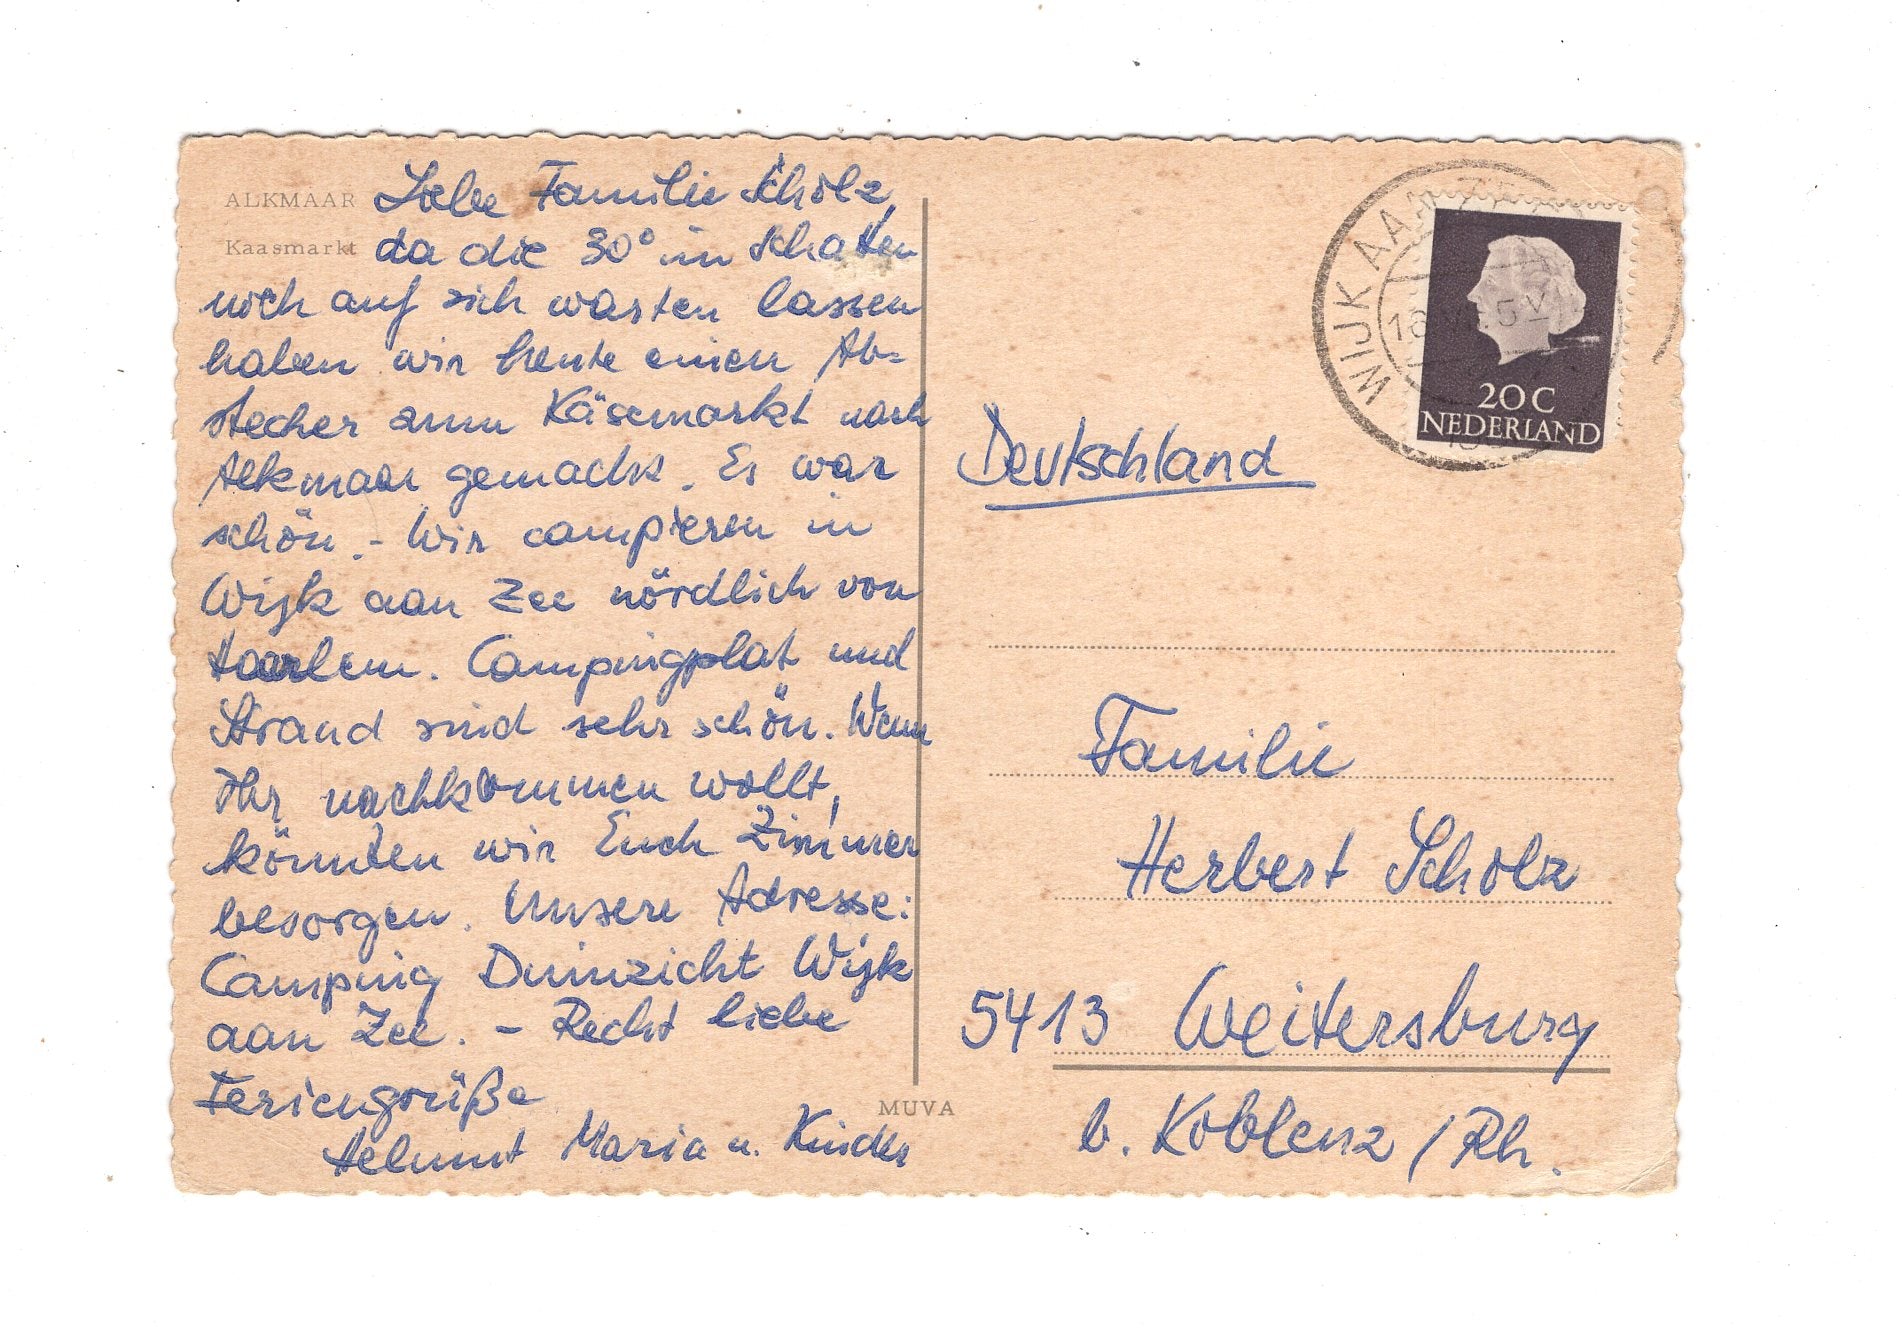 ALKMAAR
Kaasmarkt
Liebe Familie Scholz,
da die 30° im Schatten
noch auf sich warten lassen
haben wir heute einen Ab=
stecher zum Käsemarkt nach
Alkmaar gemacht. Es war
schön. - Wir campieren in
Wijk aan Zee nördlich von
Haarlem. Campingplat und
Strand sind sehr schön. Wenn
Ihr nachkommen wollt,
könnten wir Euch Zimmer
besorgen. Unsere Adresse:
Camping Duinzicht Wijk
aan Zee. - Recht liebe
Feriengrüße
Helmut Maria u. Kinder
MUVA
WIJK AAN
20 C
NEDERLAND
Deutschland
Familie
Herbert Scholz
5413 Weitersburg
b. Koblenz / Rh.